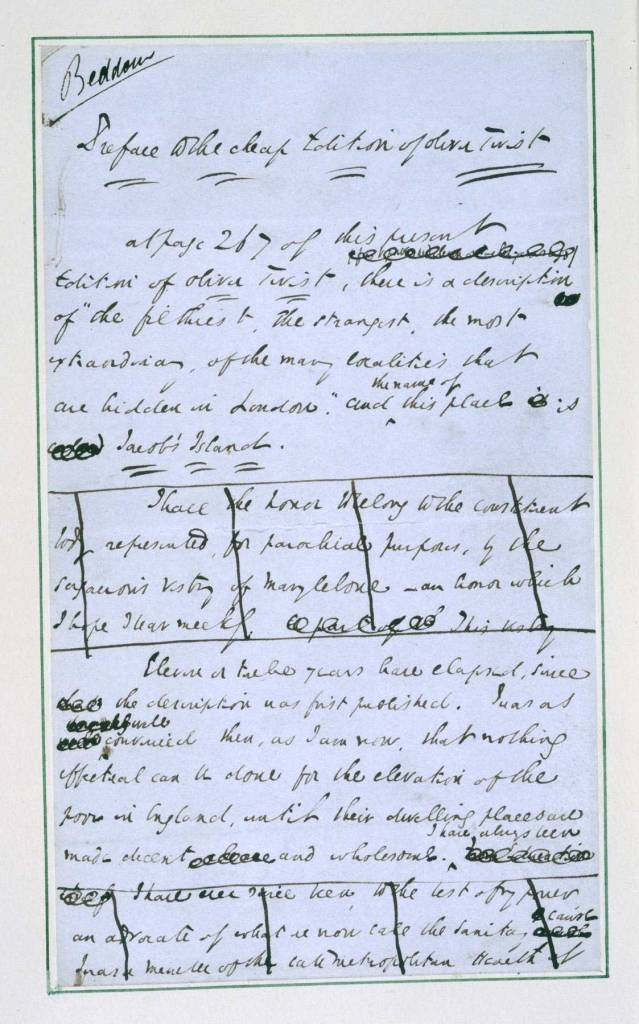 Beddow
Preface to the cheap Edition of Oliver Twist
at page 267 of this present
Edition of Oliver Twist, there is a description
of "the filthiest, the strangest, the most
extraordinary, of the many localities that
are hidden in London"; and
the name of
this place is
Jacob's Island.
I have the honor to belong to the constituent
body represented, for parochial purposes, by the
sagacious vestry of Marylebone – an honor which
I hope I bear meekly. This vestry
Eleven or twelve years have elapsed, since
the description was first published. I was as
well
convinced then, as I am now, that nothing
effectual can be done for the elevation of the
poor in England, until their dwelling places are
I have always been
made decent and wholesome.
I have ever since been to the best of my power
an advocate of what we now call the sanitary cause
I was a member of the late Metropolitan Health of